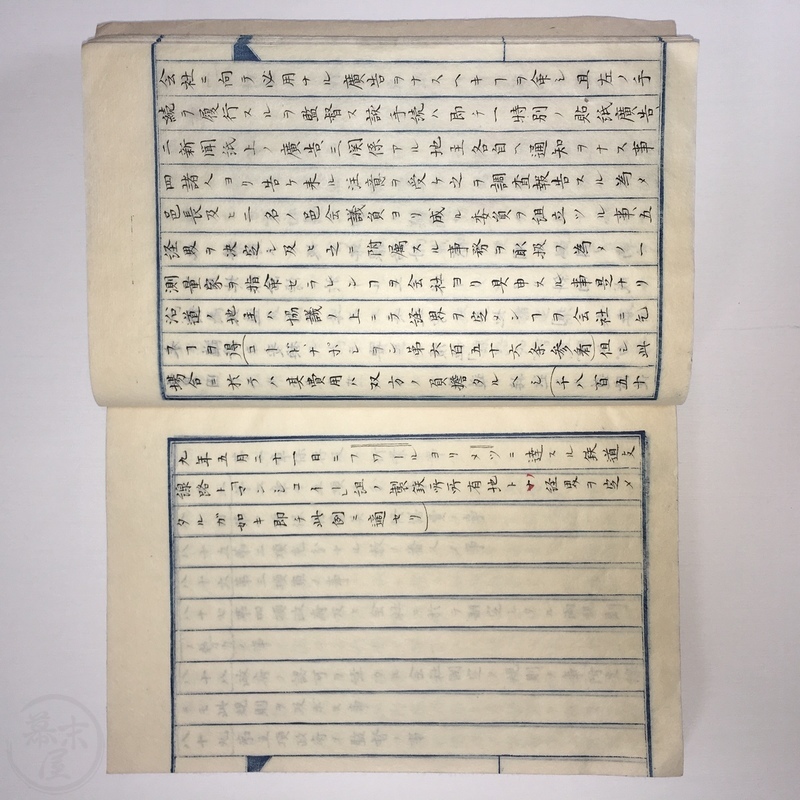 会社ニ向テ必用ナル廣告ヲナスヘキヿヲ命シ且左ノ手
続ヲ履行スルヲ監督ス該手続ハ即チ一特別ノ貼紙廣告
二新聞紙上ノ廣告三関係アル地主各自ヘ通知ヲナス事
四諸人ヨリ告ケ来ル注意ヲ受ケ之ヲ調査報告スル為メ
邑長及ヒ二名ノ邑会議員ヨリ成ル委員ヲ組立ツル事五
経界ヲ決定シ及ヒ之ニ附属スル事務ヲ取扱フ為メノ一
測量家ヲ指命セラレンヿヲ会社ヨリ具申スル事是ナリ
沿道ノ地主ハ協議ノ上ニテ経界ヲ定メンヿヲ会社ニ乞
フヿヲ得(コードナポレヲン第六百五十六条参看)但シ此
場合ニ於テハ其費用ハ双方ノ負擔タルヘシ(千八百五十
九年五月二十一日ニフワールヨリメツニ達スル鉄道支
線路ト 組ノ製鉄所所有地ト 経界ヲ定メ
タルガ如キ即チ此例ニ適セリ)
幕末屋